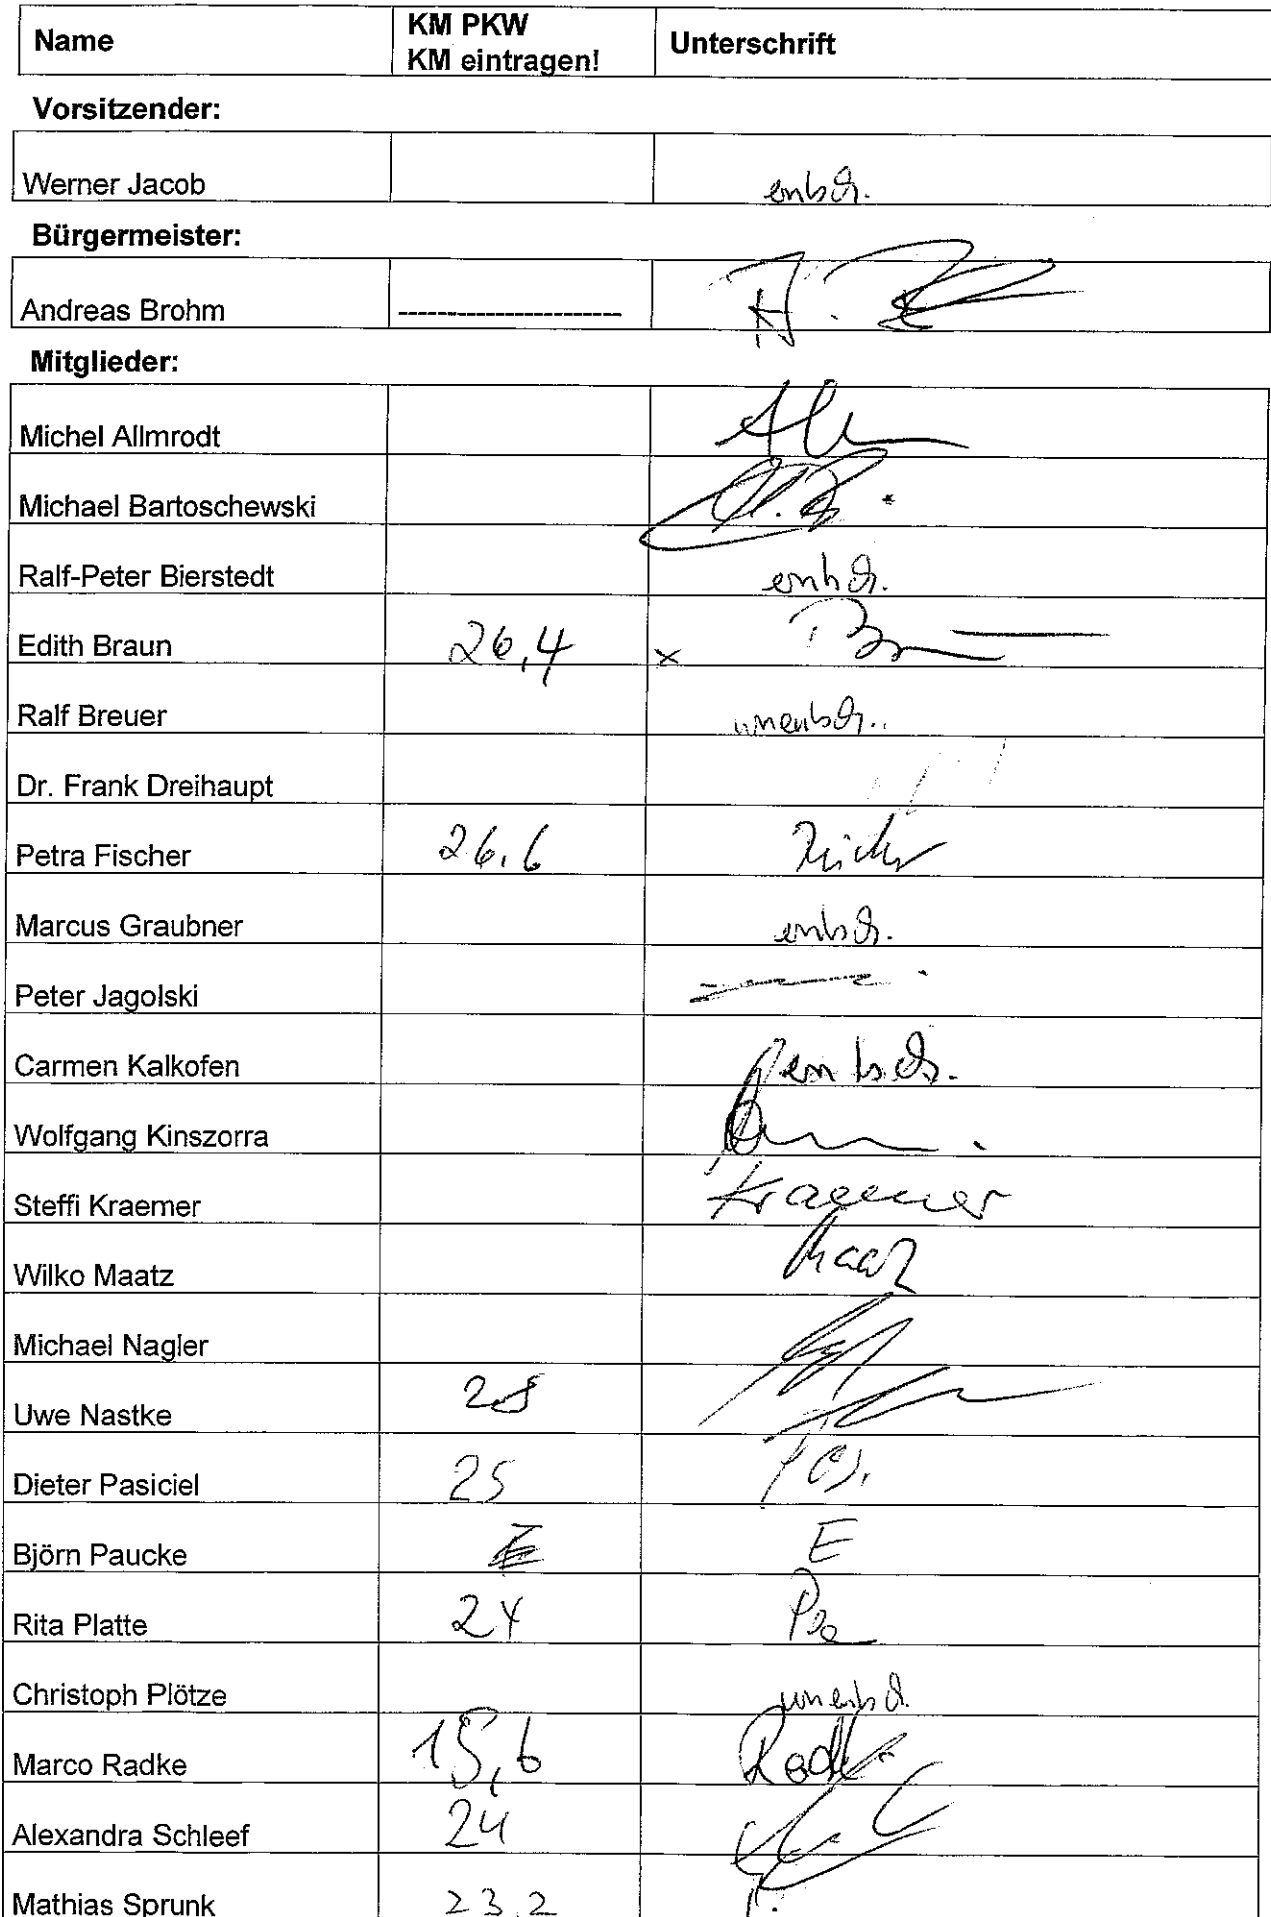 Name KM PKW KM eintragen! Unterschrift
Vorsitzender:
Werner Jacob entsch.
Bürgermeister:
Andreas Brohm ----------------------
Mitglieder:
Michel Allmrodt
Michael Bartoschewski
Ralf-Peter Bierstedt entsch.
Edith Braun 26,4 x
Ralf Breuer unentsch.
Dr. Frank Dreihaupt
Petra Fischer 26,6
Marcus Graubner entsch.
Peter Jagolski
Carmen Kalkofen entsch.
Wolfgang Kinszorra
Steffi Kraemer Kraemer
Wilko Maatz Maatz
Michael Nagler
Uwe Nastke
Dieter Pasiciel 25
Björn Paucke E
Rita Platte
Christoph Plötze unentsch.
Marco Radke 15,6 Radke
Alexandra Schleef 24
Mathias Sprunk 23,2